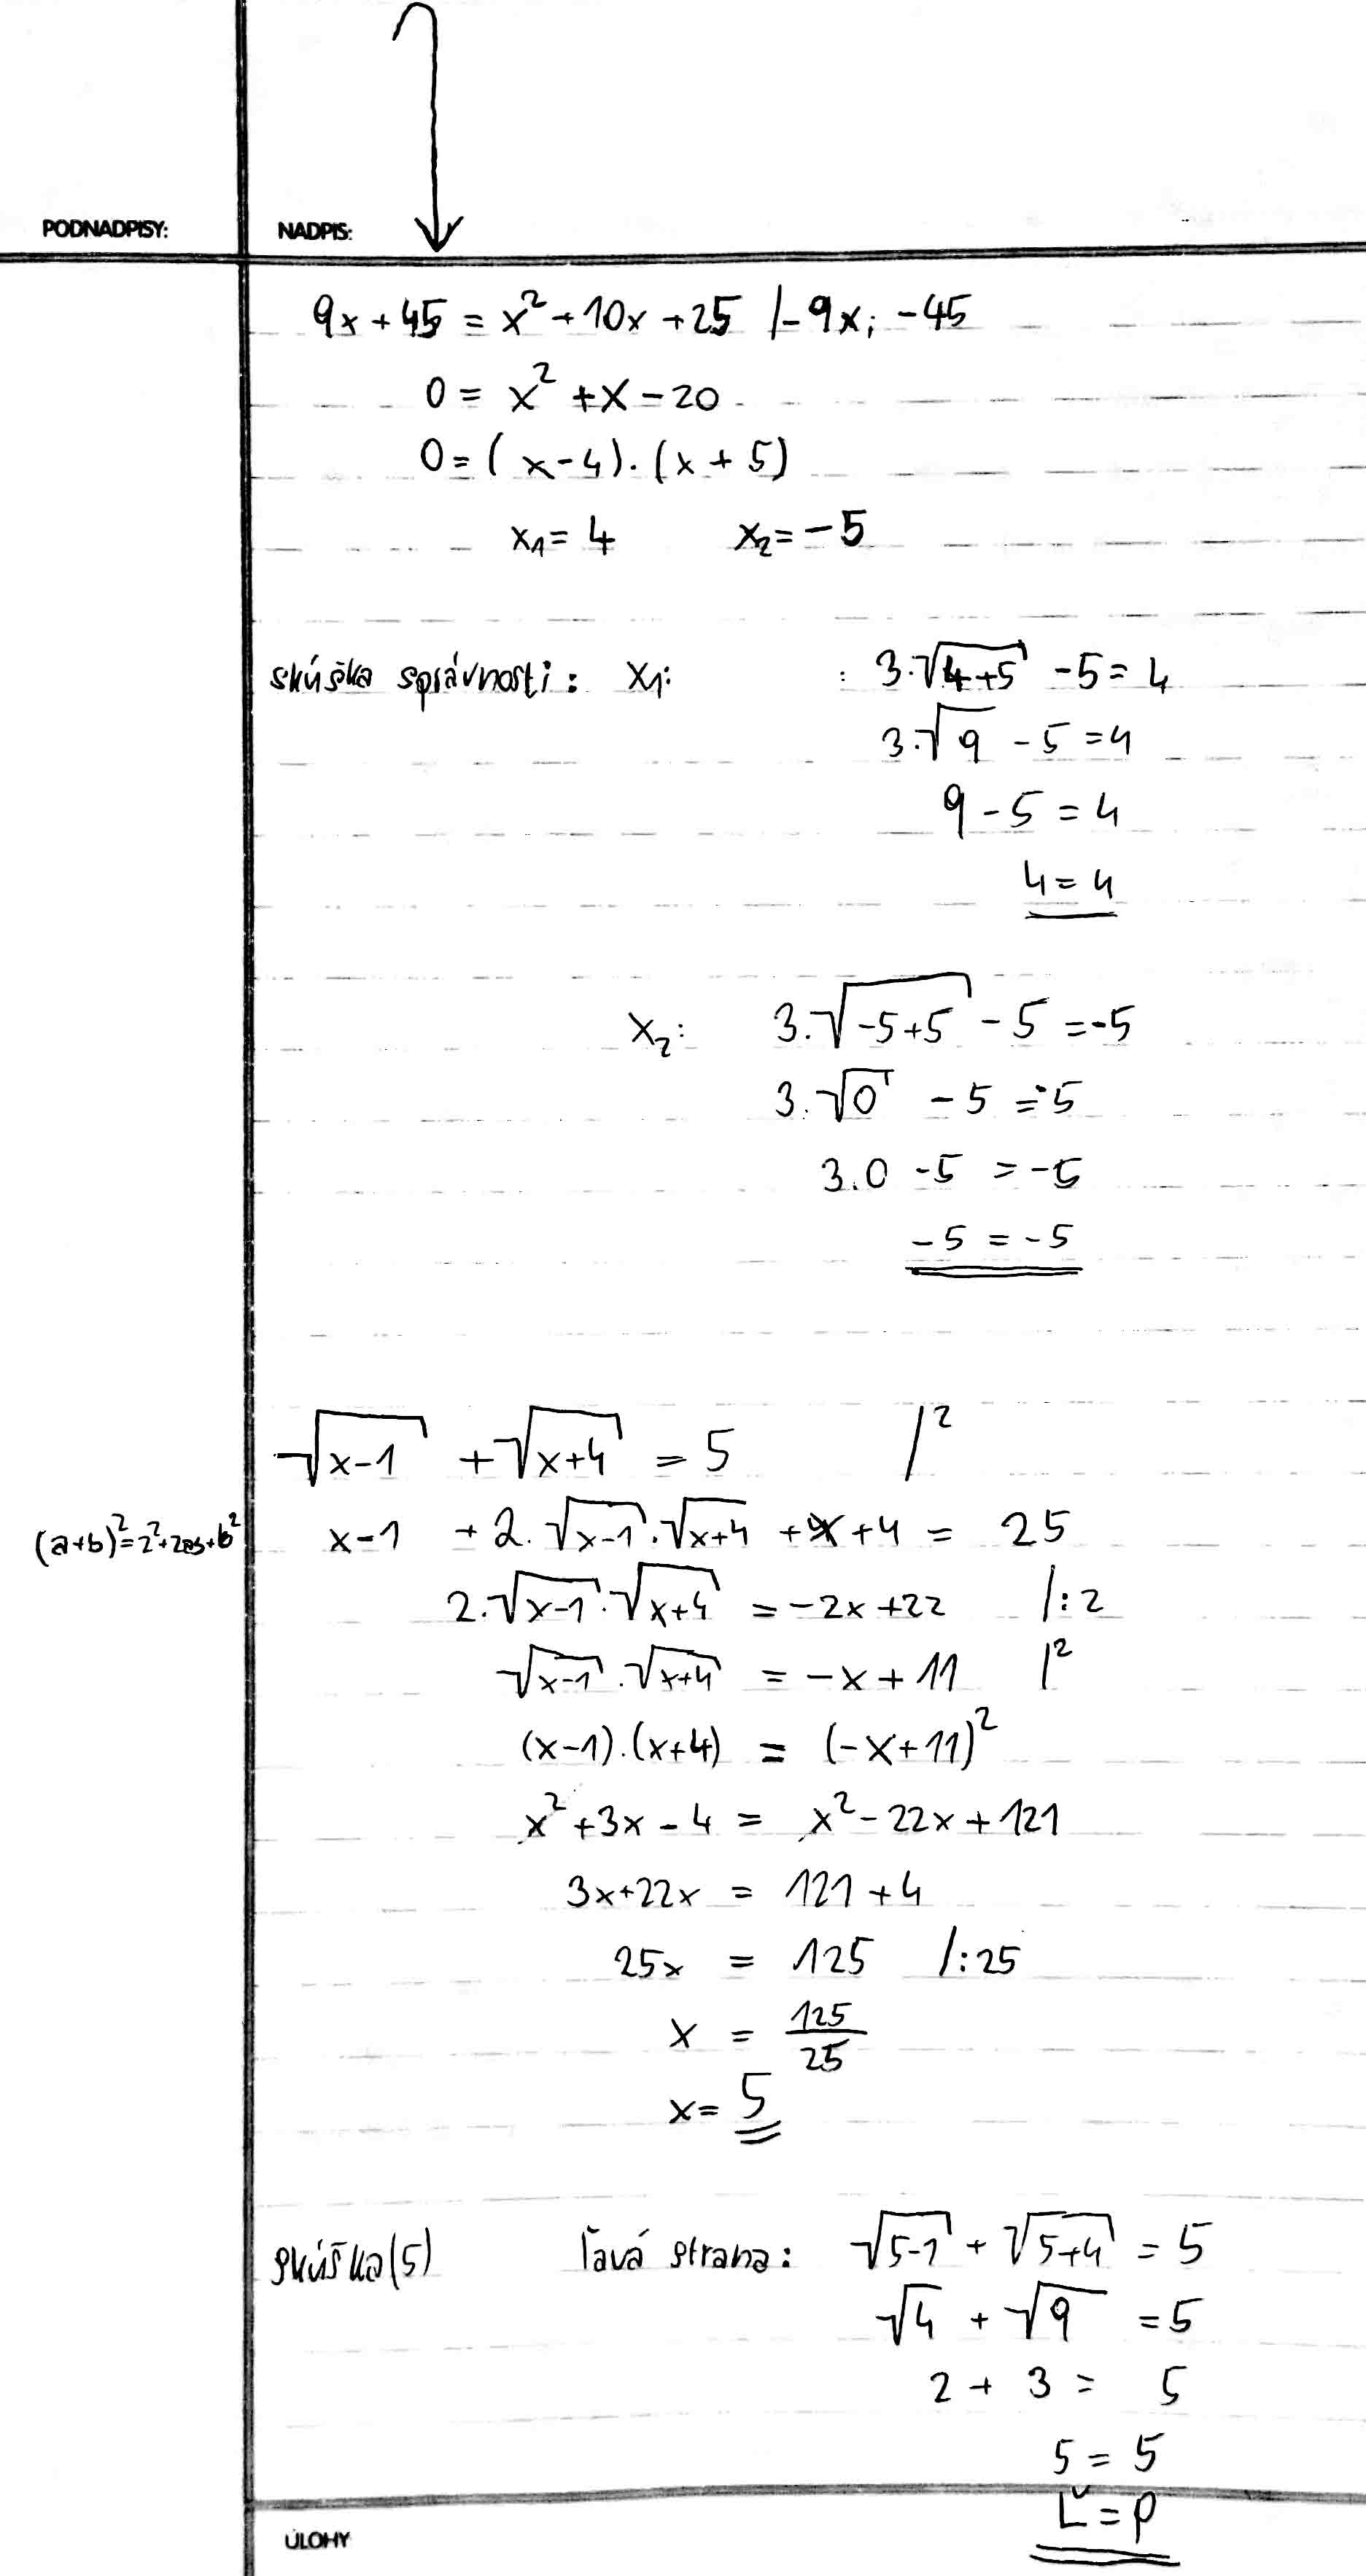 PODNADPISY: NADPIS:
9x + 45 = x² + 10x + 25 /-9x; -45
0 = x² + x - 20
0 = (x-4).(x+5)
x₁ = 4 x₂ = -5
skúška správnosti: x₁: : 3.√(4+5) - 5 = 4
3.√9 - 5 = 4
9 - 5 = 4
4 = 4
x₂: 3.√(-5+5) - 5 = -5
3.√0 - 5 = -5
3.0 - 5 = -5
-5 = -5
√(x-1) + √(x+4) = 5 /²
(a+b)² = a²+2ab+b² x-1 + 2.√(x-1).√(x+4) + x + 4 = 25
2.√(x-1).√(x+4) = -2x + 22 /:2
√(x-1).√(x+4) = -x + 11 /²
(x-1).(x+4) = (-x+11)²
x² + 3x - 4 = x² - 22x + 121
3x + 22x = 121 + 4
25x = 125 /:25
x = 125/25
x = 5
skúška(5) ľavá strana: √(5-1) + √(5+4) = 5
√4 + √9 = 5
2 + 3 = 5
5 = 5
Ľ = P
ÚLOHY